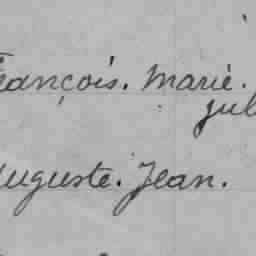 François. Marie.
jul
Auguste. Jean.